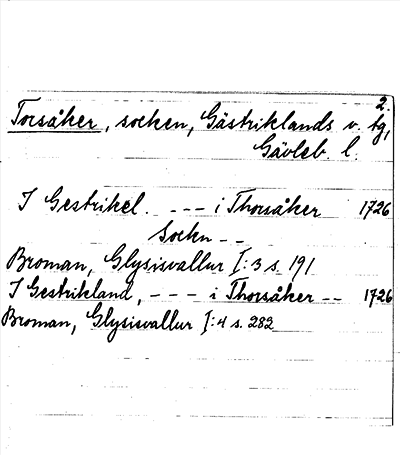 2.
Torsåker, socken, Gästriklands v. tg,
Gävleb. l.
I Gestrikel. --- i Thorsåker 1726
Sockn --
Broman, Glysisvallur I:3 s. 191
I Gestrikland, --- i Thorsåker -- 1726
Broman, Glysisvallur I:4 s. 282